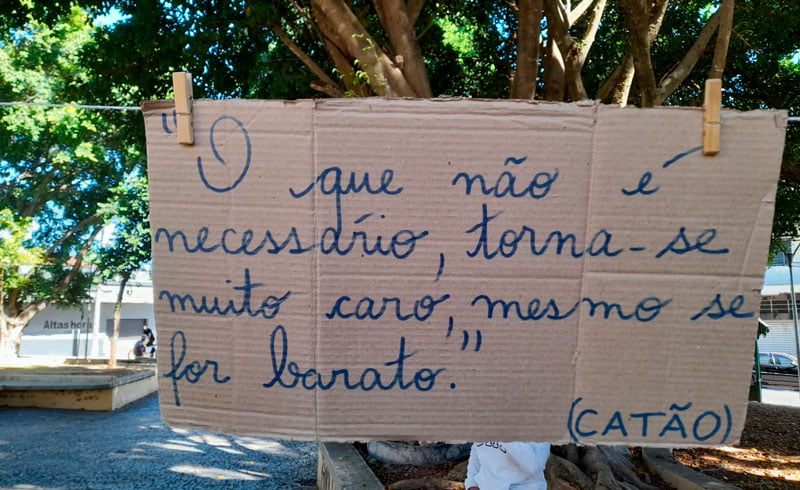 "O que não é
necessário, torna-se
muito caro, mesmo se
for barato."
(CATÃO)
Altas hora